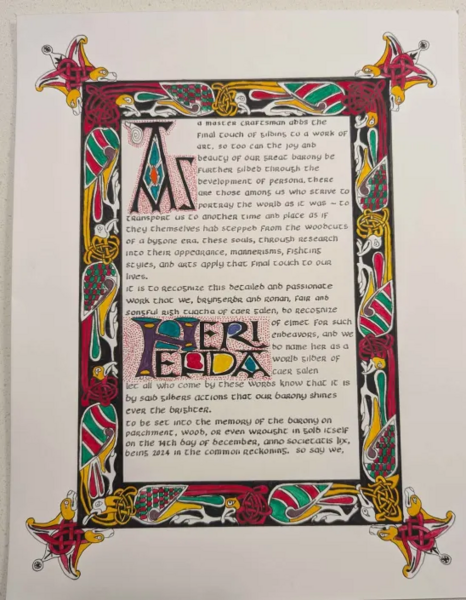 As a master craftsman adds the
final touch of gilding to a work of
art, so too can the joy and
beauty of our great barony be
further gilded through the
development of persona. there
are those among us who strive to
portray the world as it was - to
transport us to another time and place as if
they themselves had stepped from the woodcuts
of a bygone era. these souls, through research
into their appearance, mannerisms, fighting
styles, and arts apply that final touch to our
lives.
it is to recognize this detailed and passionate
work that we, and ronan, fair and
songful righ tuatha of caer galen, do recognize
HERI
of elmet for such
endeavors, and we
do name her as a
world gilder of
caer galen
let all who come by these words know that it is
by said gilders actions that our barony shines
ever the brighter.
to be set into the memory of the barony on
parchment, wood, or even wrought in gold itself
on the 14th day of december, anno societatis lix,
being 2024 in the common reckoning. so say we,